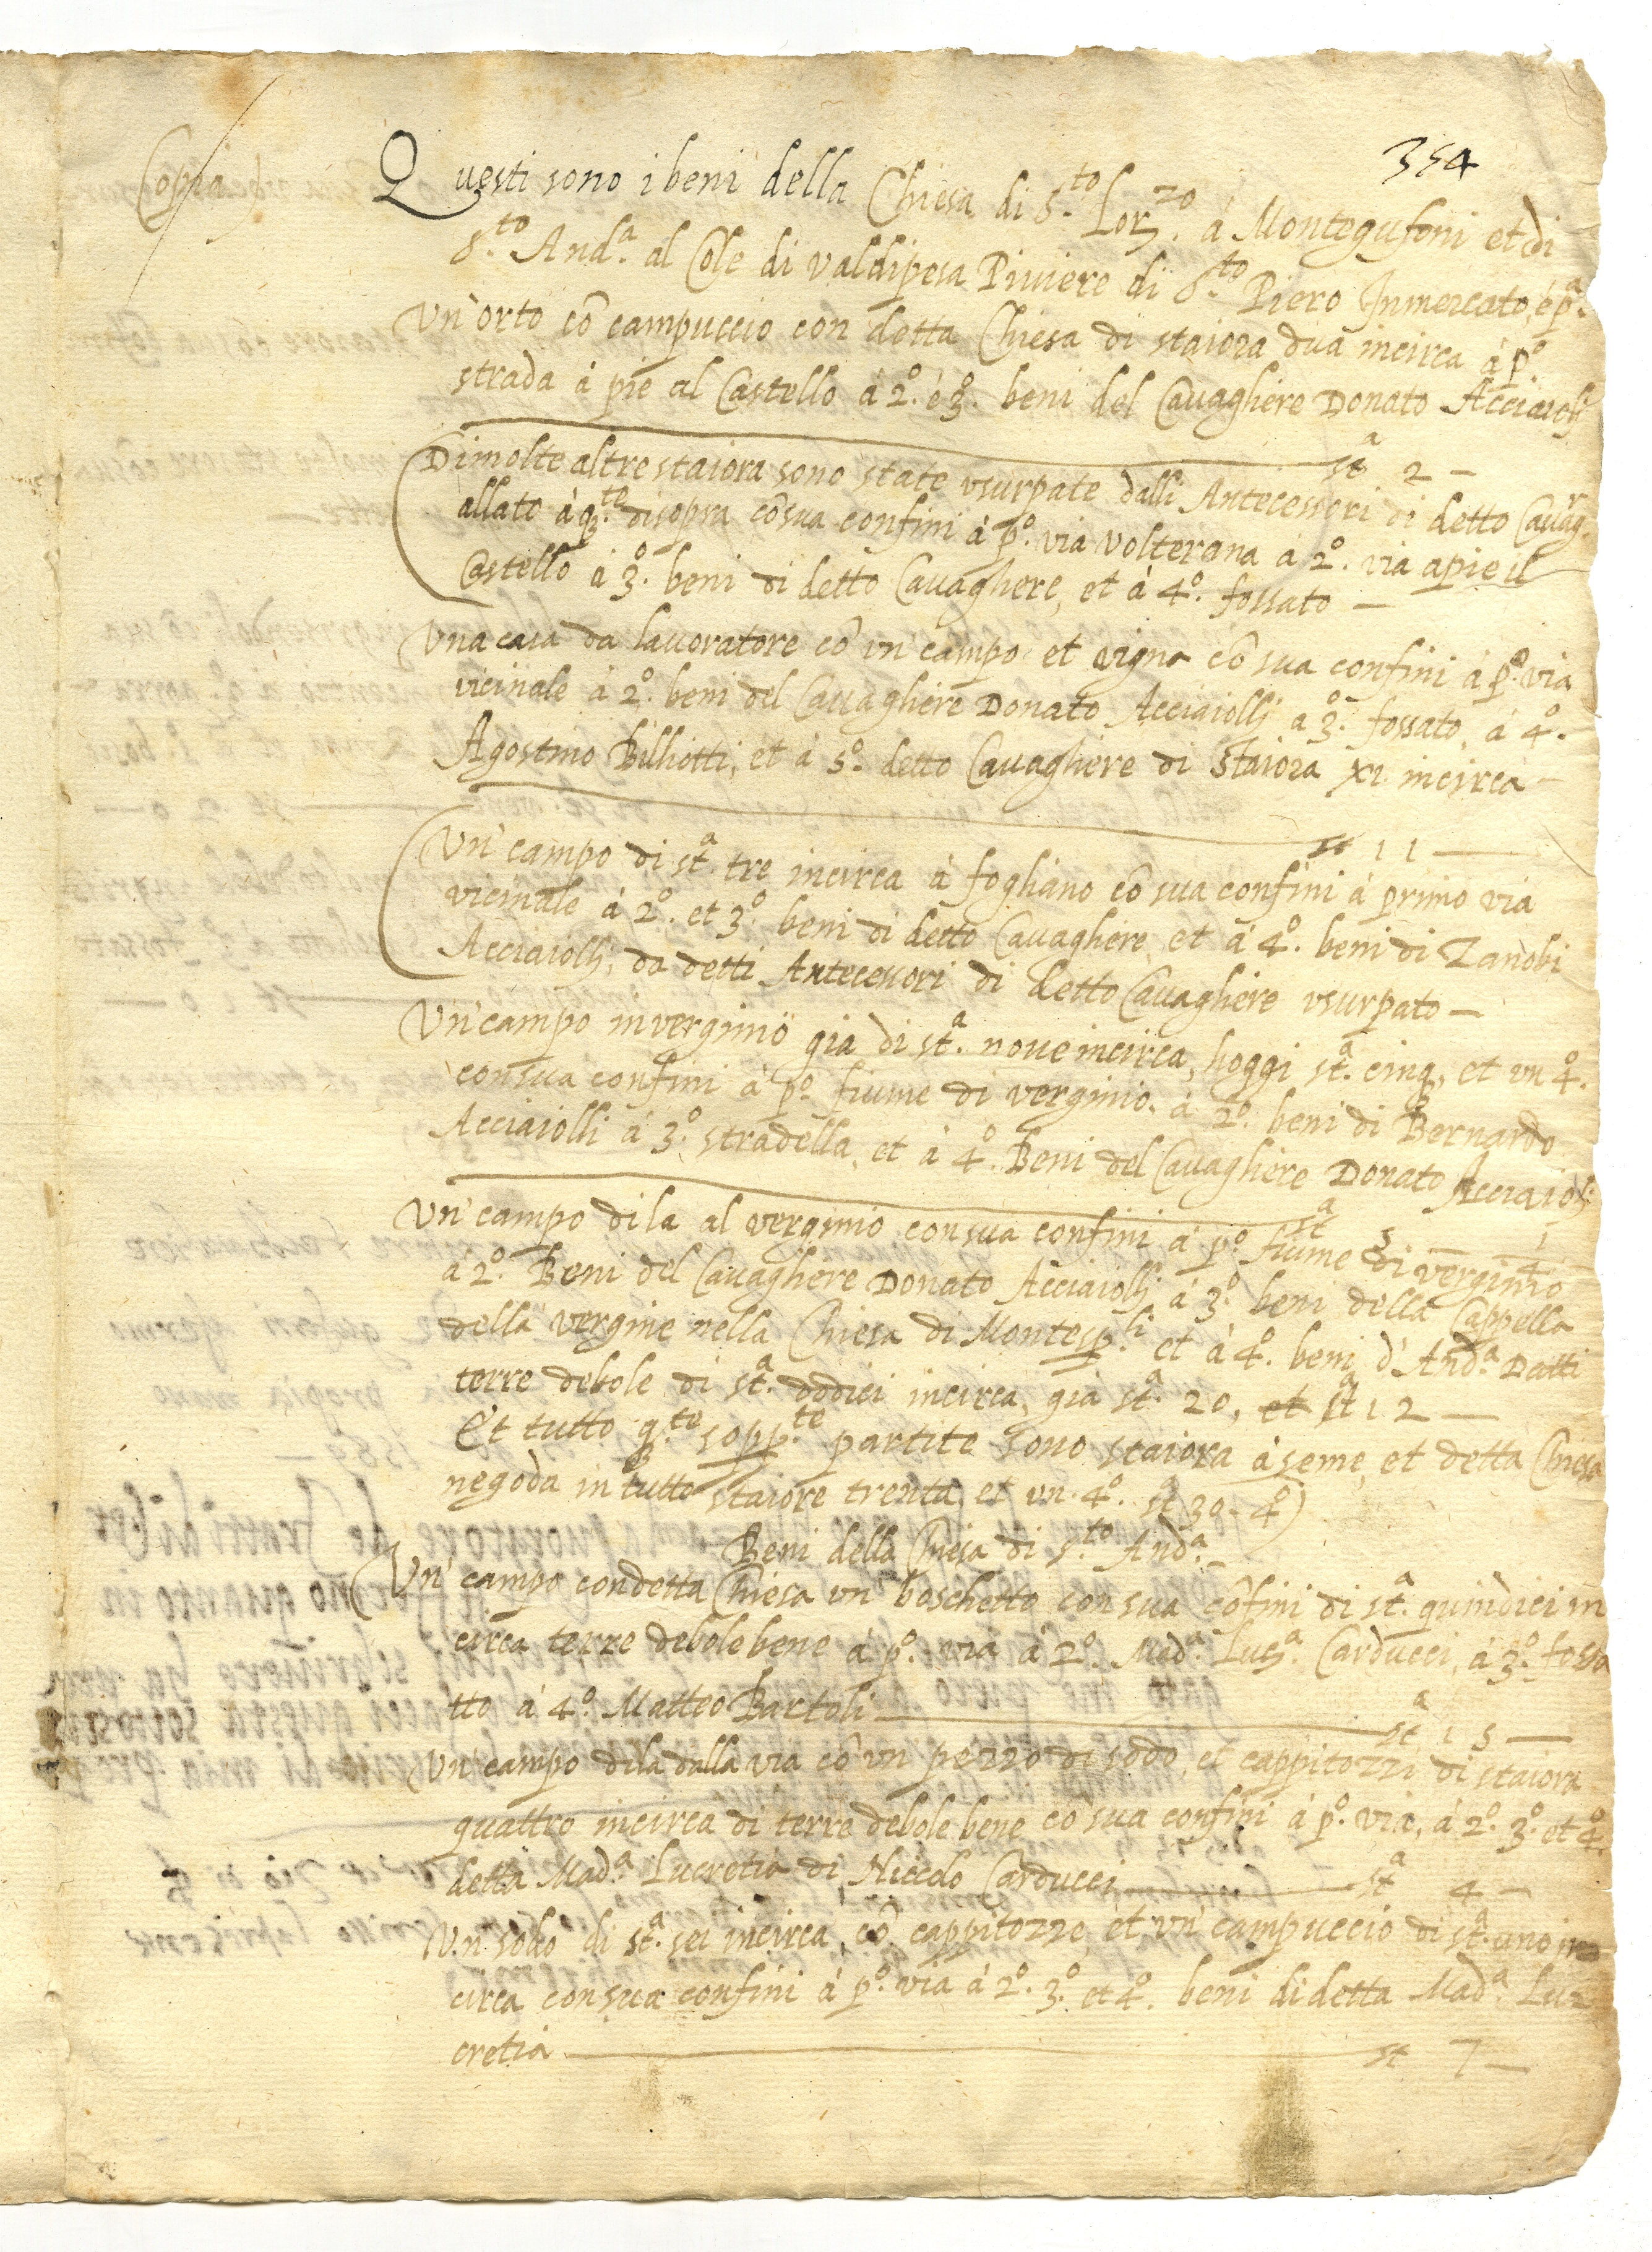 354
Copia
Questi sono i beni della Chiesa di S.to Lor.zo à Montegufoni et di
S.to And.a al Cole di valdipesa Piviere di S.to Piero Inmercato, è p.a
Un'orto cō campuccio con detta Chiesa di staiora dua incirca à p.o
strada à pie al Castello à 2.o è 3.o beni del Cauaghere Donato Acciaioli
st.a 2 —
Dimolte altre staiora sono state vsurpate dalli Antecessori di detto Cauag.r
allato à q.te disopra cō sua confini à p.o via volterana à 2.o via apie il
Castello à 3.o beni di detto Cauaghere, et à 4.o fossato —
Una casa da lauoratore cō un campo et vigna cō sua confini à p.o via
vicinale à 2.o beni del Cauaghere Donato Acciaiolli a 3.o fossato, à 4.o
Agostino Billiotti, et à 5.o detto Cauaghere di staiora XI incirca —
st 11 —
Un'campo di st.a tre incirca à fogliano cō sua confini à primo via
vicinale à 2.o et 3.o beni di detto Cauaghere, et à 4.o beni di Zanobi
Acciaiolli, da detti Antecessori di detto Cauaghere vsurpato —
Un'campo inverginio gia di st.a noue incirca, hoggi st.a cinq, et un 4.o
con sua confini à p.o fiume di verginio à 2.o beni di Bernardo
Acciaiolli à 3.o stradella, et à 4.o Beni del Cauaghere Donato Acciaioli
st.a 5 — 1/4
Un'campo dila al verginio con sua confini à p.o fiume di verginio
à 2.o Beni del Cauaghere Donato Acciaiolli à 3.o beni della Cappella
della vergine nella Chiesa di Montesp.li et à 4.o beni d'And.a Datti
terre debole di st.a dodici incirca, già st.a 20, et st.a 12 —
Et tutto q.te sopp.te partite sono staiora à seme, et detta Chiesa
negoda in tutto staiore trenta et un 4.o st.a 30 - 4.o)
Beni della Chiesa di S.to And.a
Un'campo con detta Chiesa un boschetto con sua cōfini di st.a quindici in
circa terre debole bene à p.o via à 2.o Mad.a Luc.a Carducci, à 3.o fossa
tto à 4.o Matteo Bartoli — st.a 15 —
Un'campo dila dalla via cō un pezzo di sodo, et cappitozzi di staiora
quattro incirca di terre debole bene cō sua confini à p.o via, à 2.o 3.o et 4.o
detta Mad.a Lucretia di Niccolo Carducci — st.a 4 —
Un sodo di st.a sei incirca, cō cappitozze, et un'campuccio di st.a uno in
circa con sua confini à p.o via à 2.o 3.o et 4.o beni di detta Mad.a Lu=
cretia — st 7 —